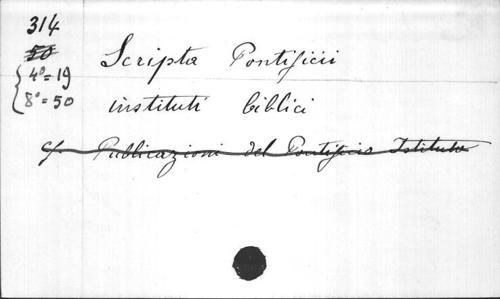 314
50
4º=19
8º=50
Scripta Pontificii
instituti biblici
cf. Publicazioni del Pontificio Istituto